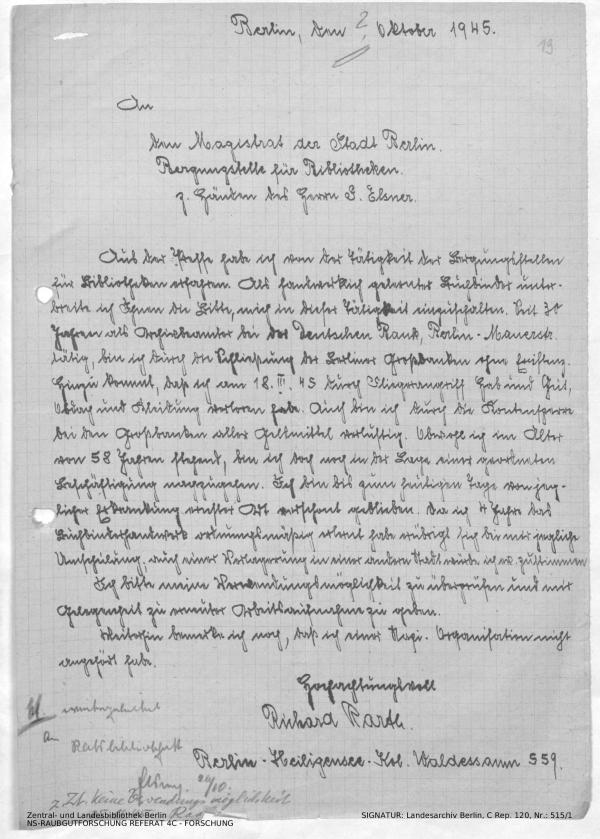 Berlin, den 2. Oktober 1945.
19
An
den Magistrat der Stadt Berlin.
Bergungstelle für Bibliotheken.
z. Händen des Herrn S. Elsner.
Aus der Presse habe ich von der Tätigkeit der Bergungsstellen
für Bibliotheken erfahren. Als handwerklich gelernter Buchbinder unter-
breite ich Ihnen die Bitte, mich in dieser Tätigkeit einzuschalten. Seit 30
Jahren als Archivbeamter bei der Deutschen Bank, Berlin - Mauerstr.
tätig, bin ich durch die Schließung der Berliner Großbanken ohne Existenz.
Hinzu kommt, daß ich am 18. III. 45 durch Fliegerangriff Hab und Gut,
Obdach und Kleidung verloren habe. Auch bin ich durch die Kontensperre
bei den Großbanken aller Geldmittel verlustig. Obwohl ich im Alter
von 58 Jahren stehend, bin ich doch noch in der Lage einer geordneten
Beschäftigung nachzugehen. Ich bin bis zum heutigen Tage von jeg-
licher Erkrankung ernster Art verschont geblieben. Da ich 4 Jahre das
Buchbinderhandwerk ordnungsmäßig erlernt habe erübrigt sich bei mir jegliche
Umschulung, auch einer Verlagerung in einer andern Stadt würde ich ev. zustimmen
Ich bitte meine Verwendungsmöglichkeit zu überprüfen und mir
Gelegenheit zu erneuter Arbeitsaufnahme zu geben.
Weiterhin bemerke ich noch, daß ich einer Nazi-Organisation nicht
angehört habe.
Hochachtungsvoll
Richard Barth.
Berlin - Heiligensee - Kol. Waldessaum 559.
weitergeleitet
an
Ratsbibliothek
20/10.
z. Zt. keine Verwendungsmöglichkeit
Zentral- und Landesbibliothek Berlin
NS-RAUBGUTFORSCHUNG REFERAT 4C - FORSCHUNG
SIGNATUR: Landesarchiv Berlin, C Rep. 120, Nr.: 515/1